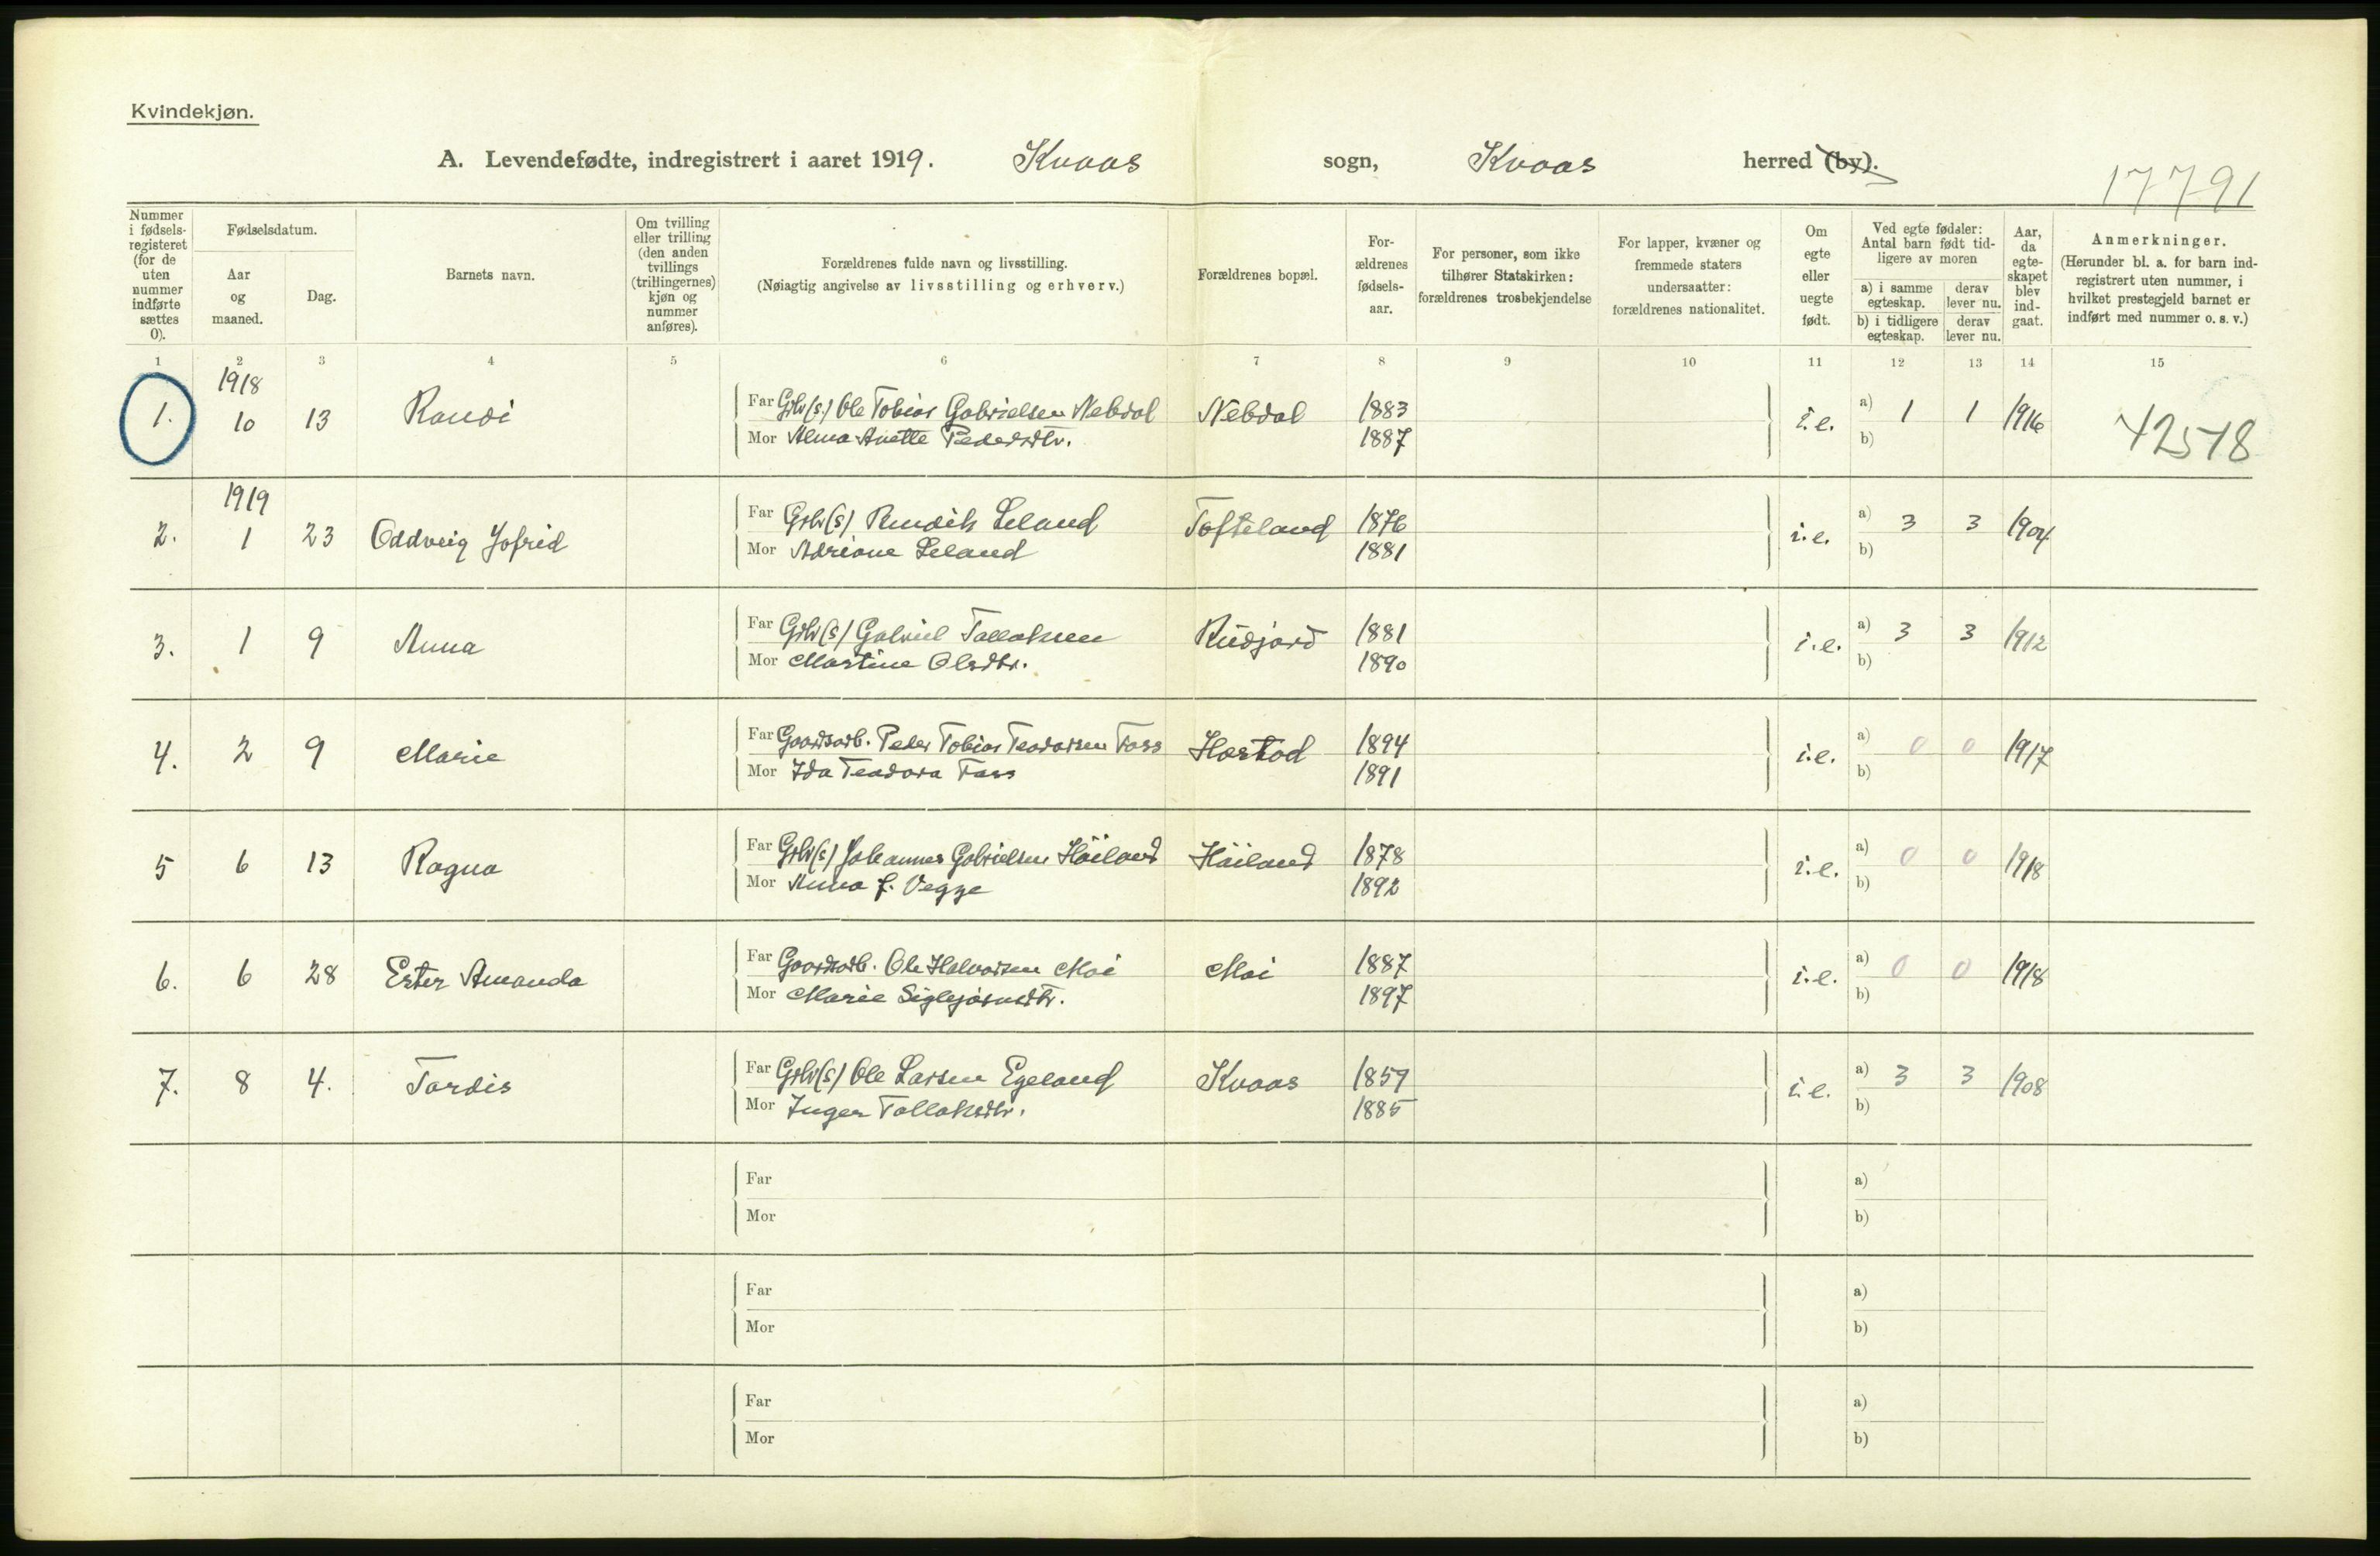 Kvindekjøn.
A. Levendefødte, indregistrert i aaret 1919. Kvaas sogn, Kvaas herred (by).
17791
Nummer i fødsels-registeret (for de uten nummer indførte sættes 0).
Fødselsdatum.
Aar og maaned.
Dag.
Barnets navn.
Om tvilling eller trilling (den anden tvillings (trillingernes) kjøn og nummer anføres).
Forældrenes fulde navn og livsstilling.
(Nøiagtig angivelse av livsstilling og erhverv.)
Forældrenes bopæl.
For-ældrenes fødsels-aar.
For personer, som ikke tilhører Statskirken: forældrenes trosbekjendelse
For lapper, kvæner og fremmede staters undersaatter: forældrenes nationalitet.
Om egte eller uegte født.
Ved egte fødsler: Antal barn født tid-ligere av moren
a) i samme egteskap.
derav lever nu.
b) i tidligere egteskap.
derav lever nu.
Aar, da egte-skapet blev ind-gaat.
Anmerkninger.
(Herunder bl. a. for barn ind-registrert uten nummer, i hvilket prestegjeld barnet er indført med nummer o. s. v.)
1 2 3 4 5 6 7 8 9 10 11 12 13 14 15
1918
1. 10 13 Randi Far Grbr (s) Ole Tobias Gabrielsen Nebdal Nebdal 1883 i.e. a) 1 1 1916 42518
Mor Alma Anette Pedersdtr. 1887 b)
1919
2. 1 23 Oddveig Jofrid Far Grbr (s) Leland Tofteland 1876 i.e. a) 3 3 1904
Mor Adriane Leland 1881 b)
3. 1 9 Anna Far Grbr (s) Gabriel Tallaksen Rudjord 1881 i.e. a) 3 3 1912
Mor Martine Olsdtr. 1890 b)
4. 2 9 Marie Far Gaardsarb. Peder Tobias Teodorsen Foss 1894 i.e. a) 0 0 1917
Mor Ida Teodora Foss 1891 b)
5 6 13 Ragna Far Grbr (s) Johannes Gabrielsen Høiland Høiland 1878 i.e. a) 0 0 1918
Mor Anna f. Vegge 1892 b)
6. 6 28 Ester Amanda Far Gaardsarb. Ole Halvorsen Moi Moi 1887 i.e. a) 0 0 1918
Mor Marie Siglejørnsdtr. 1897 b)
7. 8 4. Tordis Far Grbr (s) Ole Larsen Egeland Kvaas 1859 i.e. a) 3 3 1908
Mor Inger Tallaksdtr. 1885 b)
Far a)
Mor b)
Far a)
Mor b)
Far a)
Mor b)